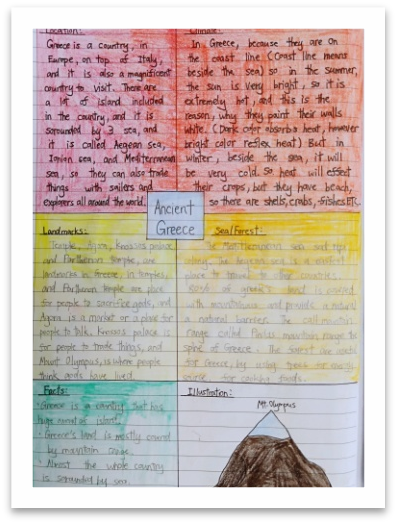 Location:
Greece is a country, in
Europe, on top of Italy,
and it is also a magnificent
country to visit. There are
a lot of island included
in the country, and it is
sorounded by 3 sea, and
it is called Aegean sea,
Ionian sea, and Mediterranean
sea, so they can also trade
things with sailers and
explorers all around the world.
Climate:
In Greece, because they are on
the coast line (Coast line means
beside the sea) so in the summer,
the sun is very bright, so it is
extremely hot, and this is the
reason, why they paint their walls
white. (Dark color absorbs heat, however
bright color reflex heat) But in
winter, beside the sea, it will
be very cold. so heat will effect
their crops, but they have beach,
so there are shells, crabs, fishes ETC.
Ancient
Greece
Landmarks:
Temple, Agora, Knossos palace
and Parthenon temple, are
landmarks in Greece, in temples,
and Parthenon temple are place
for people to sacrifice gods, and
Agora is a market or a place for
people to talk. Knossos palace is
for people to trade things, and
Mount Olympus, is where people
think gods have lived.
Sea/Forest:
The Mediterranean sea and
along. The Aegean sea is a
place to travel to other countries.
of greek's land is covered
with mountains and provide a natural
a natural barrier. The
range called Pindus mountains range the
spine of Greece. The forest are useful
for Greece, by using trees or
source for cooking foods.
Facts:
· Greece is a country that has
huge number of island.
· Greece's land is mostly covered
by mountain range.
· Almost the whole country
is sorounded by sea.
Illustration:
Mt. Olympus